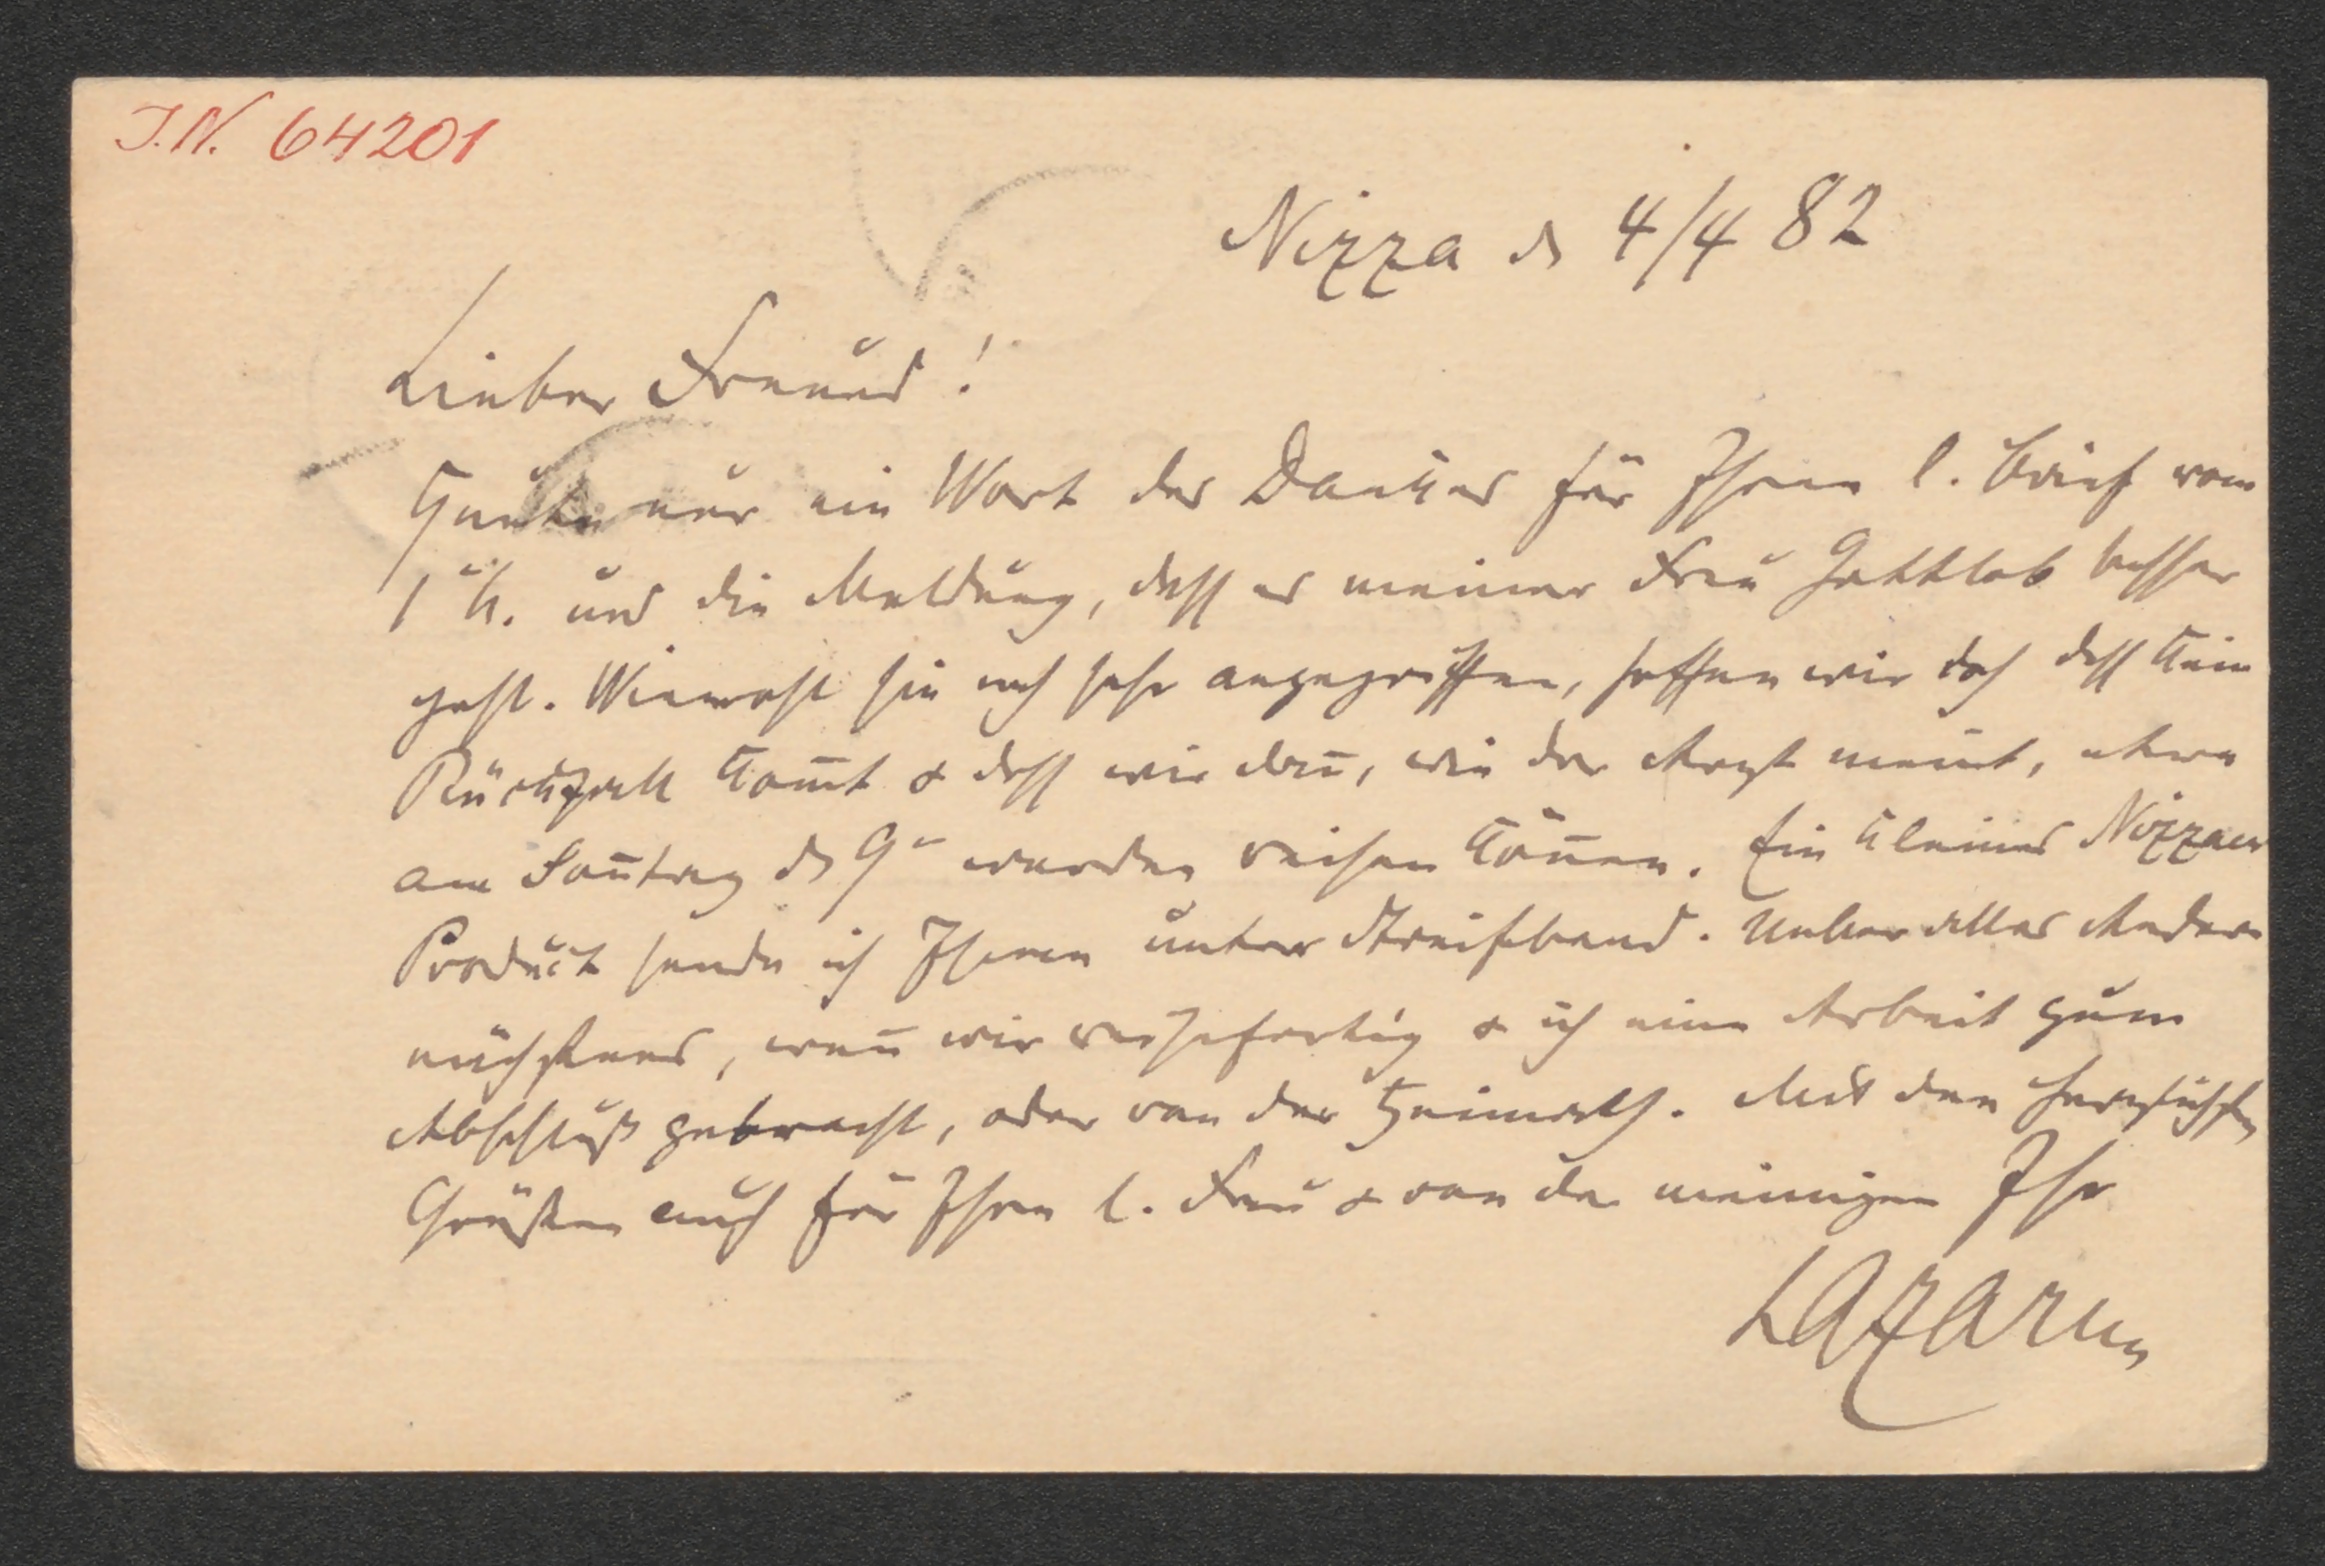 J.N. 64201
Nizza d 4/4 82
Lieber Freund!
Heute nur ein Wort des Dankes für Ihren l. Brief vom
1 und die Meldung, dass es meiner Frau Gottlob besser
geht. Wiewohl sie noch sehr angegriffen, hoffen wir doch dass kein
Rückfall kom̅t & dass wir dan̅, wie der Arzt meint, etwa
am Son̅tag d 9n werden reisen kön̅en. Ein kleines Nizzaer
Product sende ich Ihnen unter Streifband. Ueber alles Andere
nächstens, wen̅ wir reisefertig & ich eine Arbeit zum
Abschluß gebracht, oder von der Heimath. Mit den herzlichsten
Grüßen auch für Ihre l. Frau & von der meinigen Ihr
Lazarus